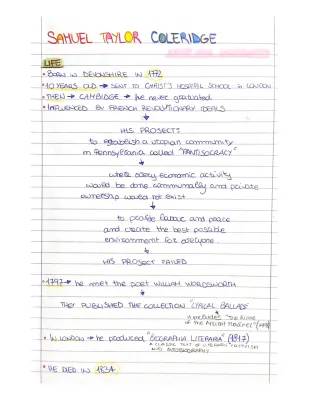 SAMUEL TAYLOR COLERIDGE
LIFE
• BORN IN DEVONSHIRE IN 1772
• 10 YEARS OLD → SENT TO CHRIST'S HOSPITAL SCHOOL in LONDON
• THEN → CAMBRIDGE → he never graduated
• INFLUENCED BY FRENCH REVOLUTIONARY IDEALS
↓
HIS PROJECT:
to establish a utopian community
in Pennsylvania called "PANTISOCRACY"
↓
where every economic activity
would be done communally and private
ownership would not exist
↓
to profile labour and peace
and create the best possible
environment for everyone
↓
HIS PROJECT FAILED
• 1797 → he met the poet WILLIAM WORDSWORTH
↓
THEY PUBLISHED THE COLLECTION "LYRICAL BALLADS"
it includes "The Rime
of the Ancient Mariner" (1798)
• IN LONDON → he produced "BIOGRAPHIA LITERARIA" (1817)
A CLASSIC TEXT OF LITERARY CRITICISM
AND AUTOBIOGRAPHY
• HE DIED IN 1834